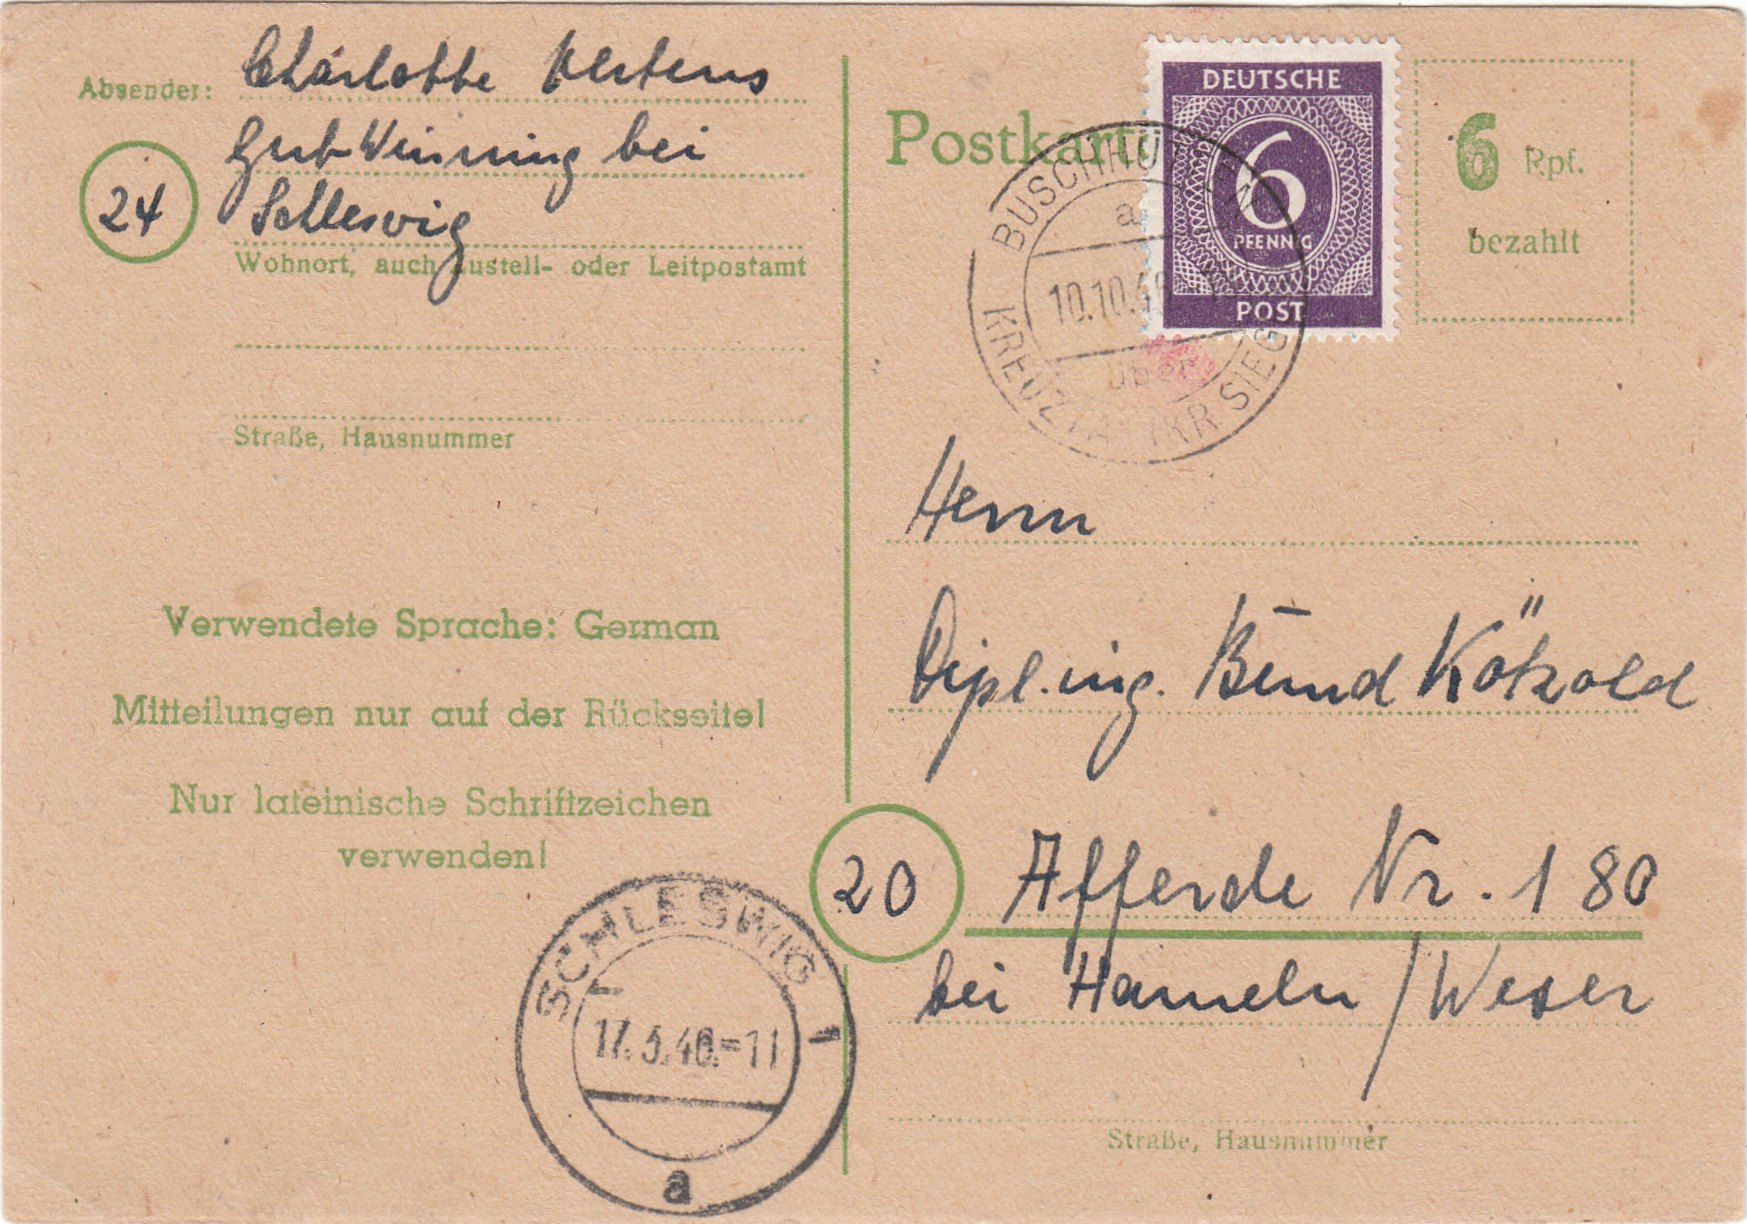 Absender: Charlotte Mertens
Gut Winning bei
24 Schleswig
Wohnort, auch Zustell- oder Leitpostamt
Straße, Hausnummer
Verwendete Sprache: German
Mitteilungen nur auf der Rückseite!
Nur lateinische Schriftzeichen
verwenden!
SCHLESWIG 1
17.5.46.-11
a
Postkarte
DEUTSCHE
6
PFENNIG
POST
6 Rpf.
bezahlt
BUSCHHÜTTEN
a
10.10.46
über
KREUZTAL (KR SIEG
Herrn
Dipl.ing. Bernd Kötzold
20 Afferde Nr. 180
bei Hameln/Weser
Straße, Hausnummer